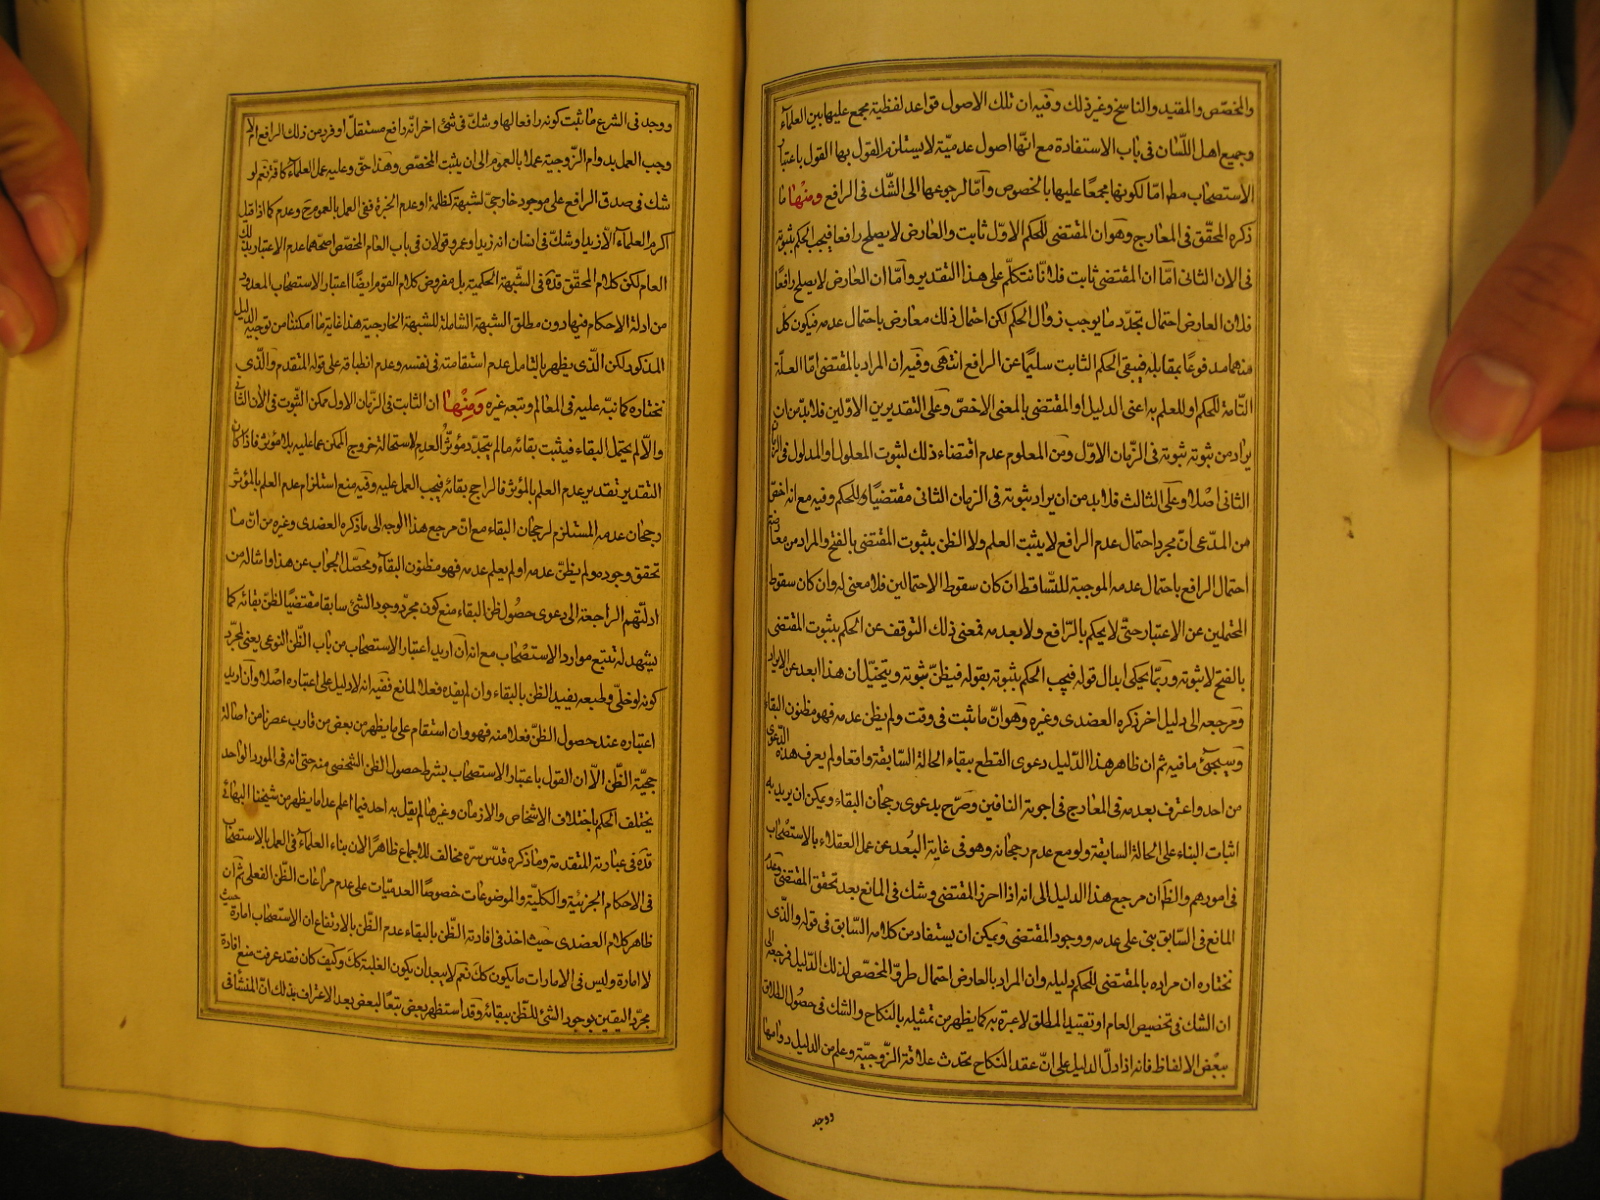 والمخصّص والمقيد والناسخ وغير ذلك وفيه ان تلك الاصول قواعد لفظية مجمع عليها بين العلماء
وجميع اهل اللّسان فى باب الاستفادة مع انّها اصول عدميّة لا يستلزم القول بها القول باعتبار
الاستصحاب مط امّا لكونها مجمعًا عليها بالخصوص وأمّا لرجوعها الى الشّك فى الرافع ومنها ما
ذكره المحقّق فى المعارج وهو ان المقتضى للحكم الاوّل ثابت والعارض لا يصلح رافعا فيجب الحكم بثبوته
فى الان الثانى امّا ان المقتضى ثابت فلانّا نتكلّم على هذا التقدير وأمّا ان العارض لا يصلح رافعًا
فلان العارض احتمال تجدّد ما يوجب زوال الحكم لكن احتمال ذلك معارض باحتمال عدمه فيكون كل
منهما مدفوعًا بمقابله فيبقى الحكم الثابت سليمًا عن الرافع انتهى وفيه ان المراد بالمقتضى امّا العلّة
التّامة للحكم او للعلم به اعنى الدليل او المقتضى بالمعنى الاخصّ وعلى التقديرين الاوّلين فلا بدّ من ان
يراد من ثبوته ثبوته فى الزّمان الاوّل ومن المعلوم عدم اقتضاء ذلك لثبوت المعلول او المدلول فى الزمان
الثانى اصْلا وعلى الثالث فلابد من ان يراد ثبوته فى الزمان الثانى مقتضيًا للحكم وفيه مع انه اخصّ
من المدّعى انّ مجرد احتمال عدم الرافع لا يثبت العلم ولا الظن بثبوت المقتضى بالفتح والمراد من معارضة
احتمال الرافع باحتمال عدمه الموجبة للتّساقط ان كان سقوط الاحتمالين فلا معنى له وان كان سقوط
المحتملين عن الاعتبار حتّى لا يحكم بالرّافع ولا بعدمه فمعنى ذلك التوقف عن الحكم بثبوت المقتضى
بالفتح لا ثبوته وربّما يحكى ابدال قوله فيجب الحكم بثبوته بقوله فيظنّ ثبوته ويتخيّل ان هذا ابعد عن الايراد
ومرجعه الى دليل اخر ذكره العضدى وغيره وهو انّ ما ثبت فى وقت ولم يظن عدمه فهو مظنون البقاء
وسيجىء ما فيه ثم ان ظاهر هذا الدّليل دعوى القطع ببقاء الحالة السّابقة واقعا ولم يعرف هذه الدّعوى
من احد واعترف بعدمه فى المعارج فى اجوبة النافين وصرّح بدعوى رجحان البقاء ويمكن ان يريد به
اثبات البناء على الحالة السابقة ولو مع عدم رجحانه وهو فى غاية البُعد عن عمل العقلاء بالاستصْحاب
فى امورهم والظّ ان مرجع هذا الدليل الى انه اذا احرز المقتضى وشك فى المانع بعد تحقق المقتضى وعدم
المانع فى السّابق بنى على عدمه ووجود المقتضى ويمكن ان يستفاد من كلامه السّابق فى قوله والّذى
نختاره ان مراده بالمقتضى للحكم دليله وان المراد بالعارض احتمال طروّ المخصّص لذلك الدّليل فمرجعه الى
ان الشك فى تخصيص العام او تقييد المطلق لا عبرة به كما يظهر من تمثيله بالنكاح والشك فى حصُول الطلاق
ببعْض الالفاظ فانه اذا دلّ الدليل على انّ عقد النكاح يحدث علاقة الزّوجيّة وعلم من الدليل دوامها
ووجد
ووجد فى الشرع ما ثبت كونه رافعا لها وشكّ فى شئ اخر انّه رافع مستقلّ او فرد من ذلك الرافع ام لا
وجب العمل بدوام الزّوجية عملا بالعموم الى ان يثبت المخصّص وهذا حق وعليه عمل العلماء كافّة نعم لو
شك فى صدق الرافع على موجود خارجى لشبهة كظلمة او عدم الخبرة ففى العمل بالعموم ح وعدم كما اذا قيل
اكرم العلماء الّا زيدا وشكّ فى انسان انه زيد او عمرو قولان فى باب العام المخصّص اصحّهما عدم الاعتبار بذلك
العام لكن كلام المحقق قدّه فى الشّبهة الحكمية بل مفروض كلام القوم ايضًا اعتبار الاستصحاب المعدود
من ادلة الاحكام فيها دون مطلق الشبهة الشاملة للشبهة الخارجية هذا غاية ما امكننا من توجيه الدليل
المذكور لكن الّذى يظهر بالتامل عدم استقامته فى نفسه وعدم انطباقه على قوله المتقدم والّذى
نختاره كما نبّه عليه فى المعالم وتبعه غيره ومنها ان الثابت فى الزمان الاول ممكن الثبوت فى الان الثانى
والّا لم يحتمل البقاء فيثبت بقائه ما لم يتجدّد مؤثّر العدم لاستحالة خروج الممكن عما عليه بلا مؤثر فاذا كان
التقدير تقدير عدم العلم بالمؤثر فالراجح بقائه فيجب العمل عليه وفيه منع استلزام عدم العلم بالمؤثر
رجحان عدمه المستلزم لرجحان البقاء مع انّ مرجع هذا الوجه الى ما ذكره العضدى وغيره من انّ ما
تحقق وجوده ولم يظنّ عدمه او لم يعلم عدمه فهو مظنون البقاء ومحصّل الجواب عن هذا وامثاله من
ادلّتهم الراجعة الى دعوى حصُول ظن البقاء منع كون مجرّد وجود الشئ سابقا مقتضيًا لظنّ بقائه كما
يشهد له تتبع موارد الاستصْحاب مع انه ان اريد اعتبار الاستصحاب من باب الظّن النوعى يعنى لمجرّد
كونه لو خلّى وطبعه يفيد الظن بالبقاء وان لم يفده فعلا لمانع ففيه انه لا دليل على اعتباره اصْلا وان اريد
اعتباره عند حصول الظنّ فعلا منه فهو وان استقام على ما يظهر من بعض من قارب عصرنا من اصالة
حجيّة الظّن الّا ان القول باعتبار الاستصحاب بشرط حصول الظن الشخصى منه حتى انه فى المورد الواحد
يختلف الحكم باختلاف الاشخاص والازمان وغيرها لم يقل به احد فيما اعلم عدا ما يظهر من شيخنا البهائى
قدّه فى عبارته المتقدمة وما ذكره قدّس سرّه مخالف للاجماع ظاهرًا لان بناء العلماء فى العمل بالاستصحاب
فى الاحكام الجزئيّة والكليّة والموضوعات خصوصًا العدميّات على عدم مراعات الظّن الفعلى ثم ان
ظاهر كلام العضدى حيث اخذ فى افادته الظّن بالبقاء عدم الظّن بالارتفاع ان الاستصحاب امارة حيث
لا امارة وليس فى الامارات ما يكون كك نعم لا يبعد ان يكون الغلبة كك وكيف كان فقد عرفت منع افادة
مجرّد اليقين بوجود الشئ للظّن ببقائه وقد استظهر بعض تبعًا لبعض بعد الاعتراف بذلك انّ المنشأ فى